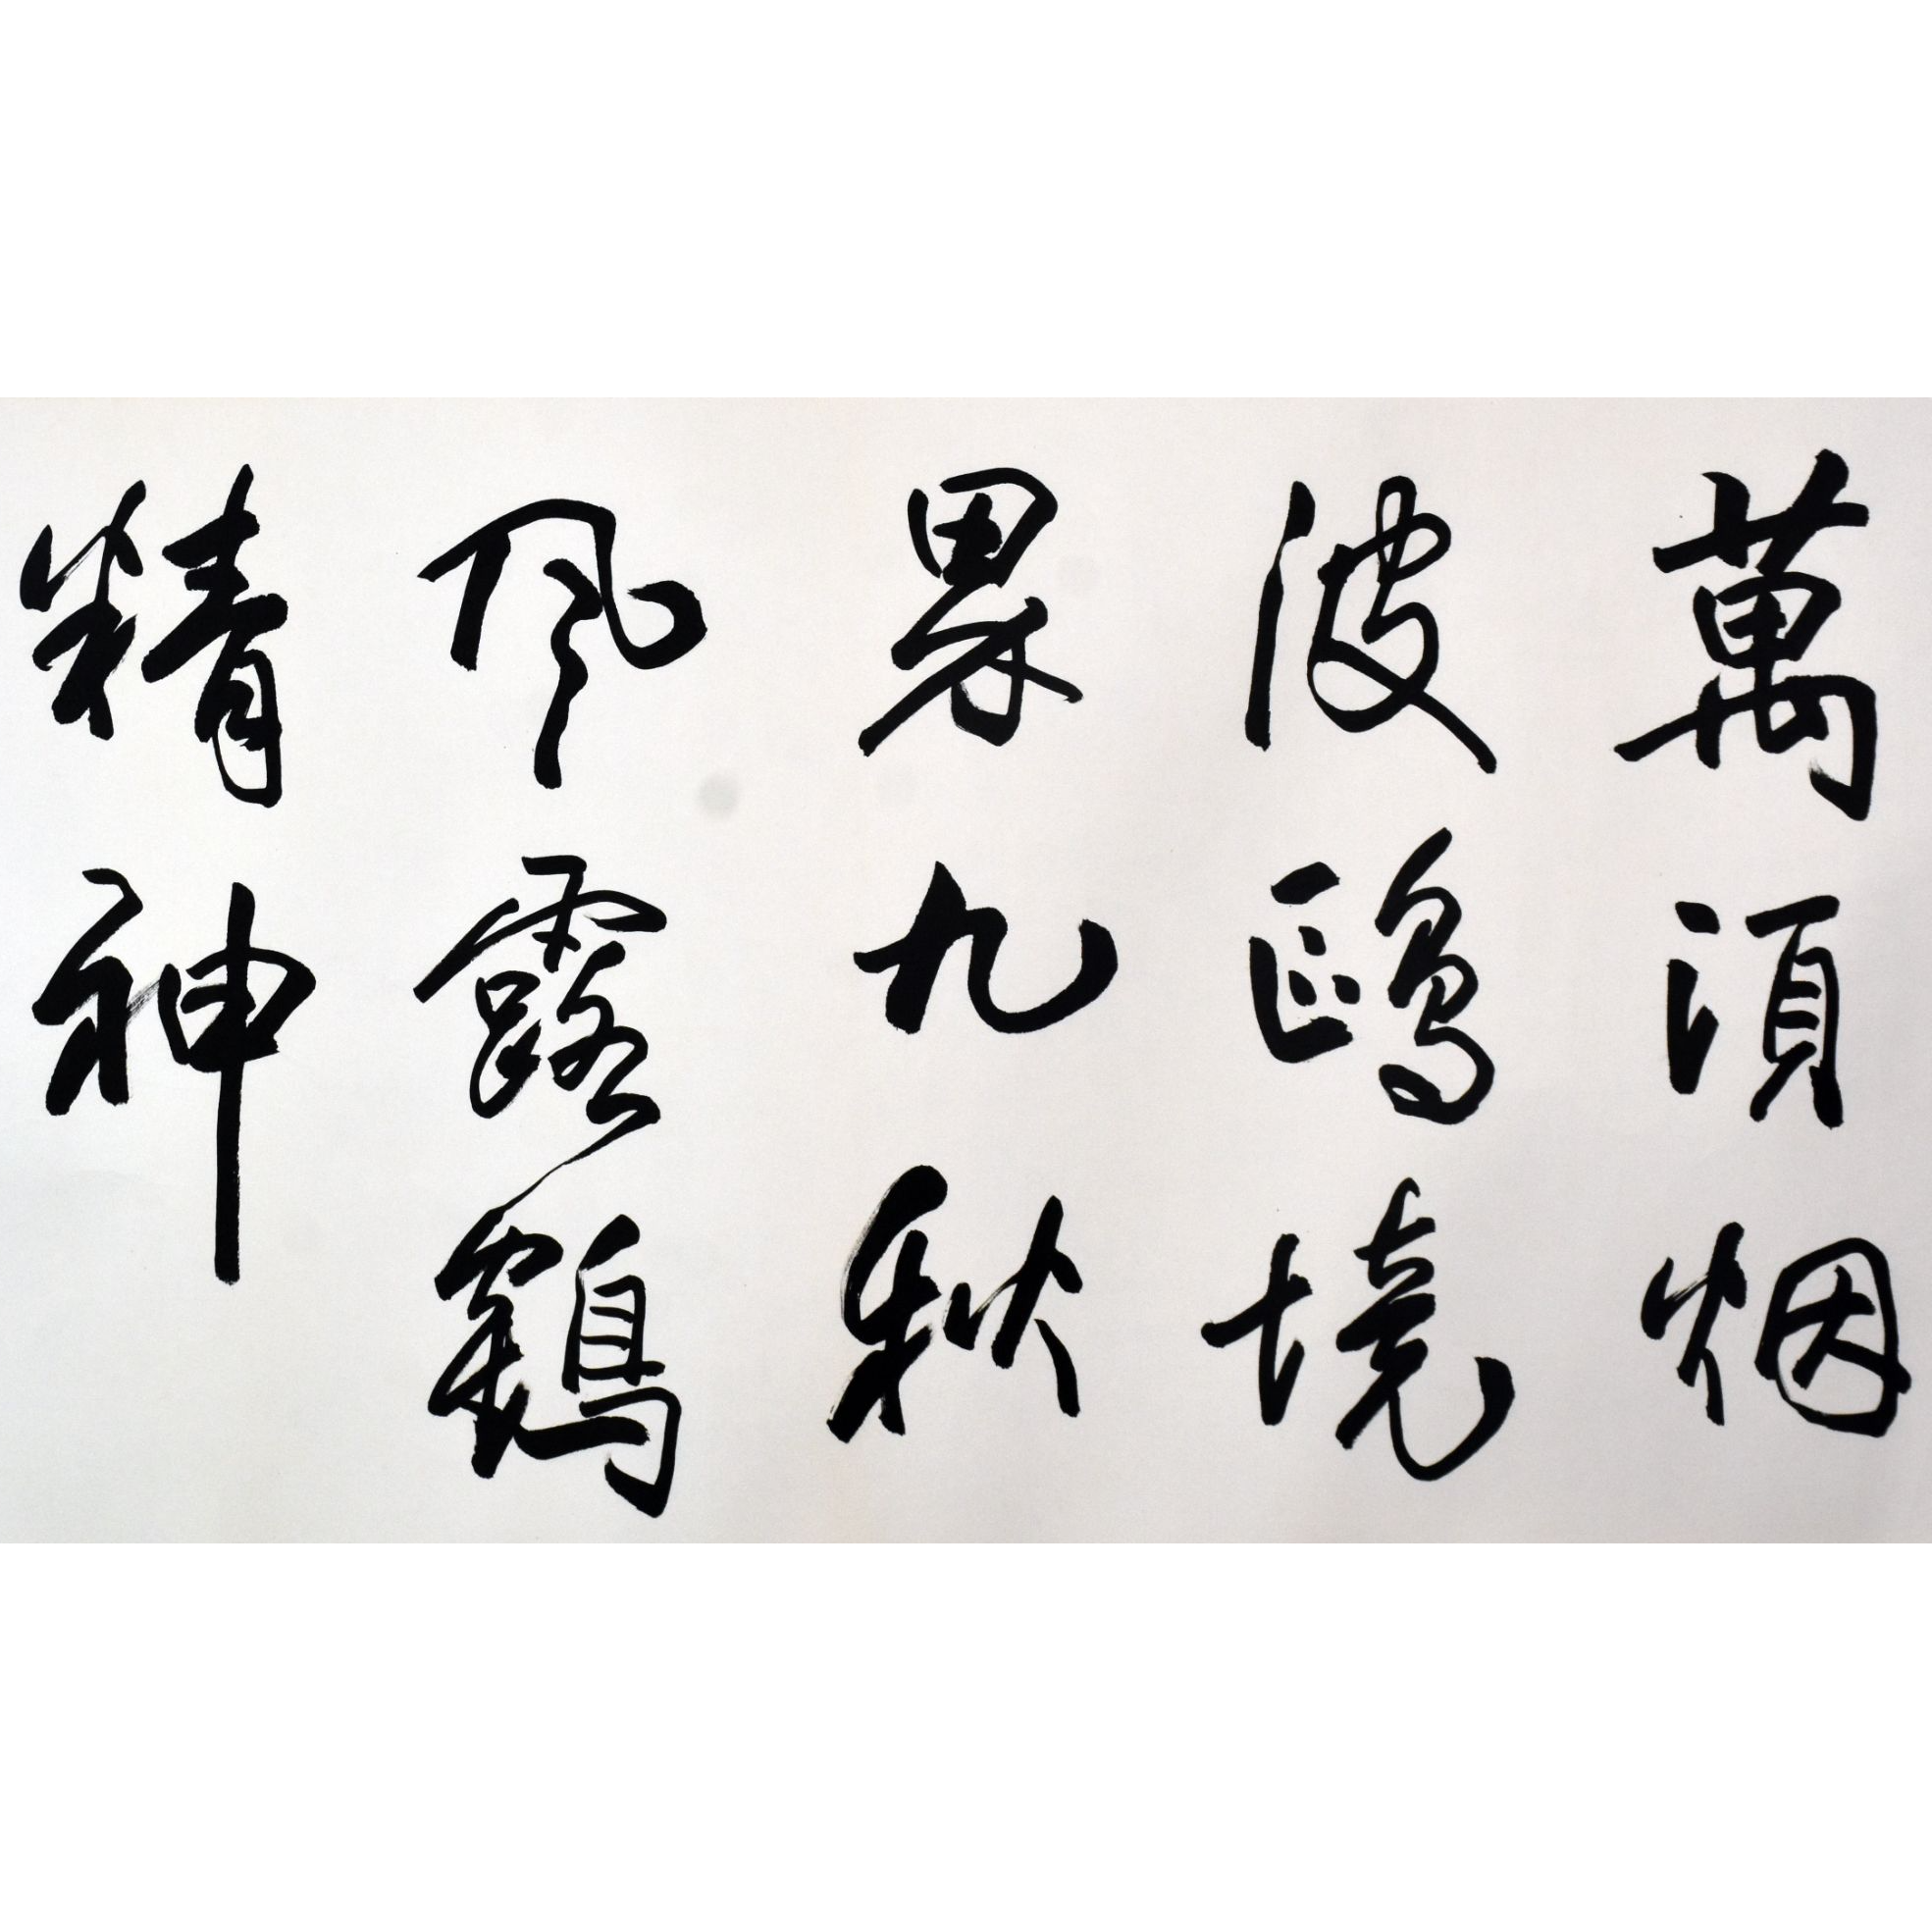 萬頃烟
波鷗境
界九秋
風露鶴
精神